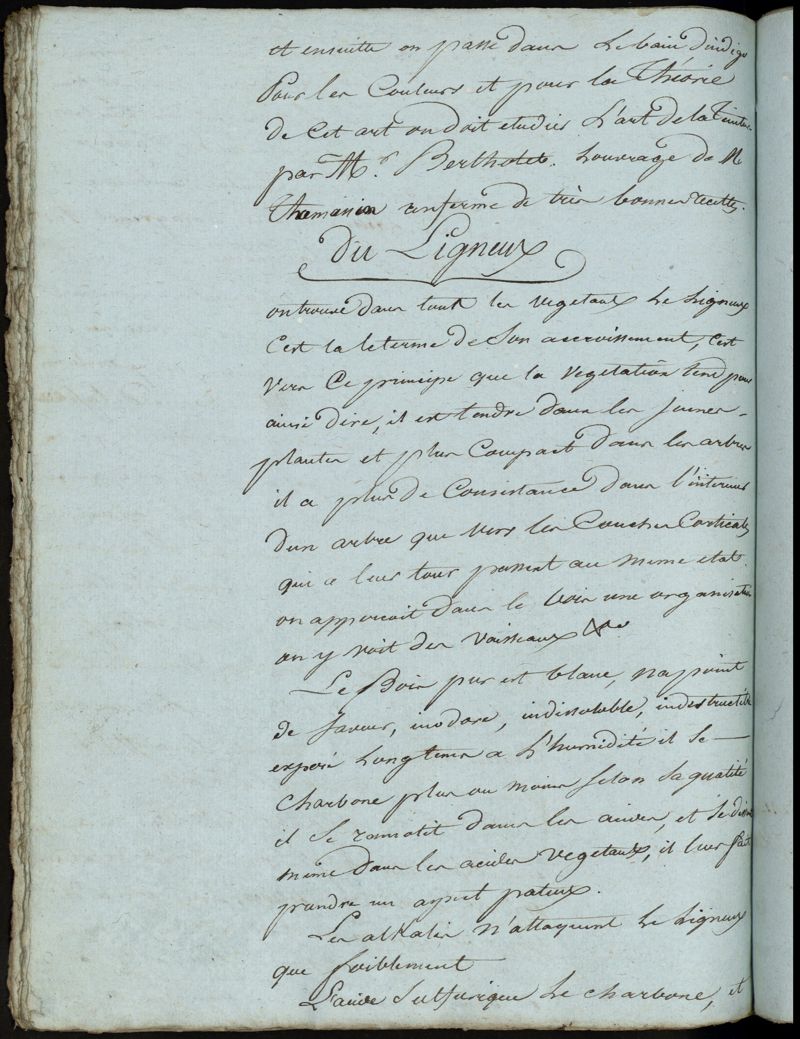 et ensuitte on passe dans le bain d'indigo
Pour les Couleurs et pour la Théorie
de Cet art on doit etudier L'art de la Teinture
par M.r Bertholet. Louvrage de M
renferme de très bonnes recettes.
Du Ligneux
on trouve dans tout les vegetaux Le Ligneux
C'est la le terme de Son accroissement, c'est
vers Ce principe que la vegetation tend pour
ainsi dire, il est tendre dans les jeunes -
plantes et plus Compact dans les arbres
il a plus de Consistance dans l'interieur
d'un arbre que vers les Couches Corticales
qui a leur tour passent au meme etat.
on apperçoit dans le bois une organisation
on y voit des vaisseaux &c
Le Bois pur est blanc, na point
de saveur, inodore, indissoluble, indestructible
exposé Longtems a L'humidité il se —
Charbone plus ou moins selon sa qualité
il se ramolit dans les acides, et se dissout
meme dans les acides vegetaux, il leur fait
prendre un aspect pateux.
Les alkalis n'attaquent Le Ligneux
que foiblement
L'acide Sulfurique Le charbone, et